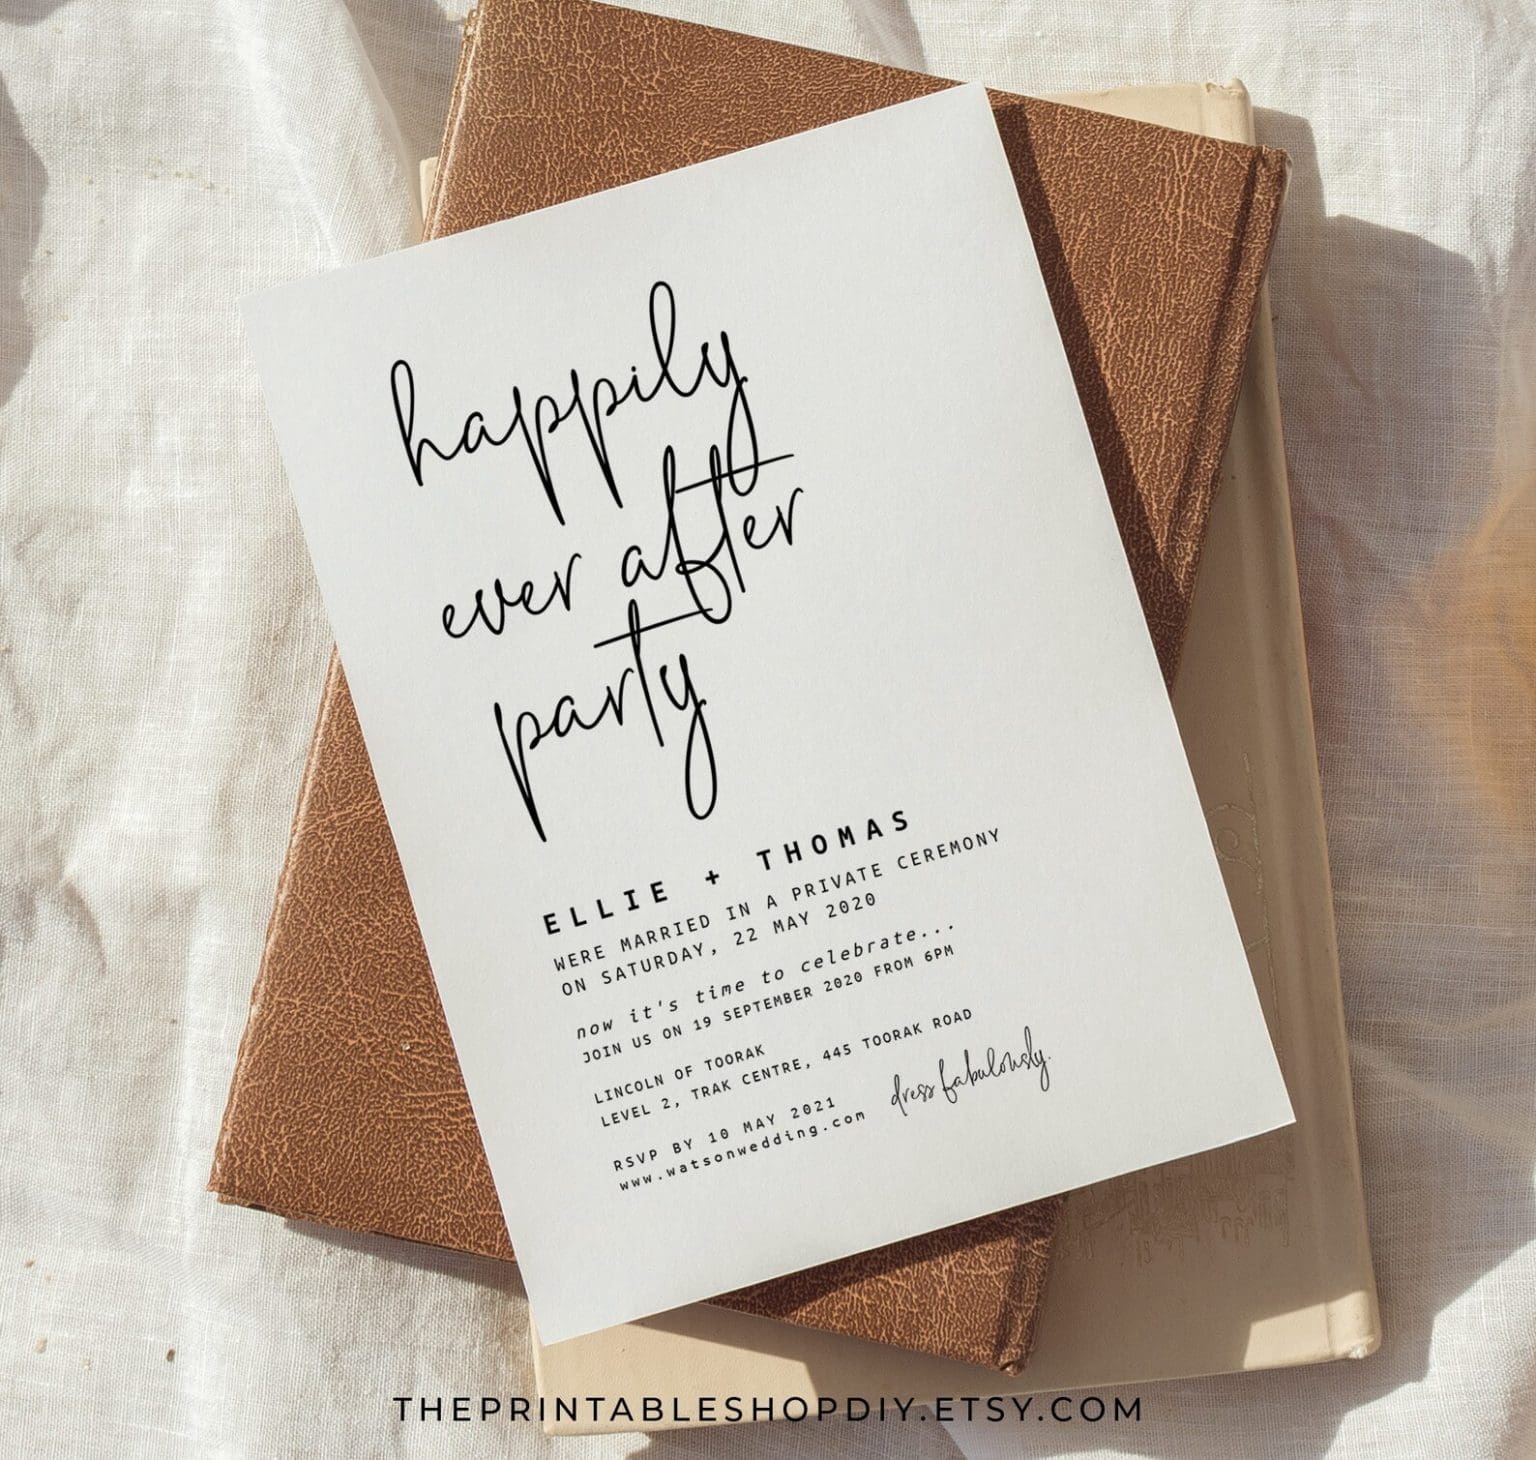 happily
ever after
party
ELLIE + THOMAS
WERE MARRIED IN A PRIVATE CEREMONY
ON SATURDAY, 22 MAY 2020
now it's time to celebrate...
JOIN US ON 19 SEPTEMBER 2020 FROM 6PM
LINCOLN OF TOORAK
LEVEL 2, TRAK CENTRE, 445 TOORAK ROAD
RSVP BY 10 MAY 2021
www.watsonwedding.com
dress fabulously.
THEPRINTABLESHOPDIY.ETSY.COM